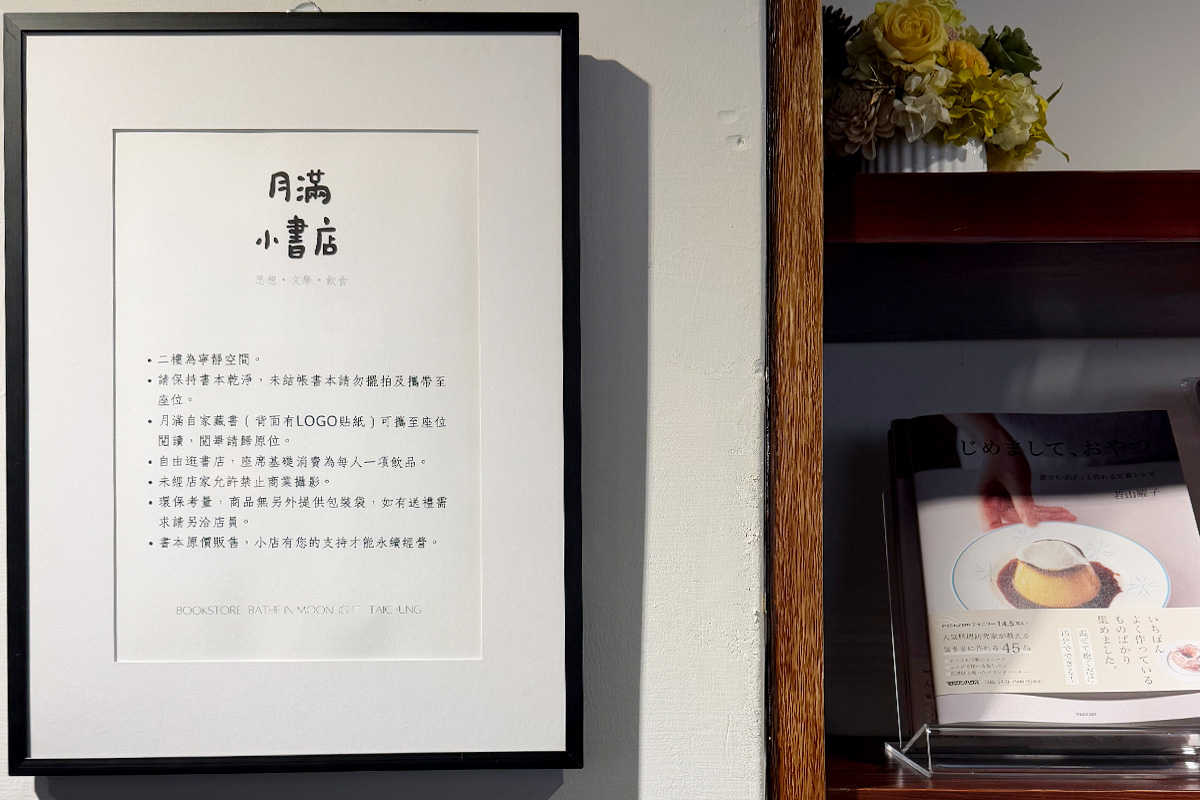 月滿
小書店
思想・文學・飲食
• 二樓為寧靜空間。
• 請保持書本乾淨，未結帳書本請勿擺拍及攜帶至
座位。
• 月滿自家藏書（背面有LOGO貼紙）可攜至座位
閱讀，閱畢請歸原位。
• 自由逛書店，座席基礎消費為每人一項飲品。
• 未經店家允許禁止商業攝影。
• 環保考量，商品無另外提供包裝袋，如有送禮需
求請另洽店員。
• 書本原價販售，小店有您的支持才能永續經營。
BOOKSTORE BATHE IN MOONLIGHT TAICHUNG
じめまして、おやつ
いちばん
よく作っている
ものばかり
集めました。
人気料理研究家が教える
気ままに作れる45品
マガジンハウス